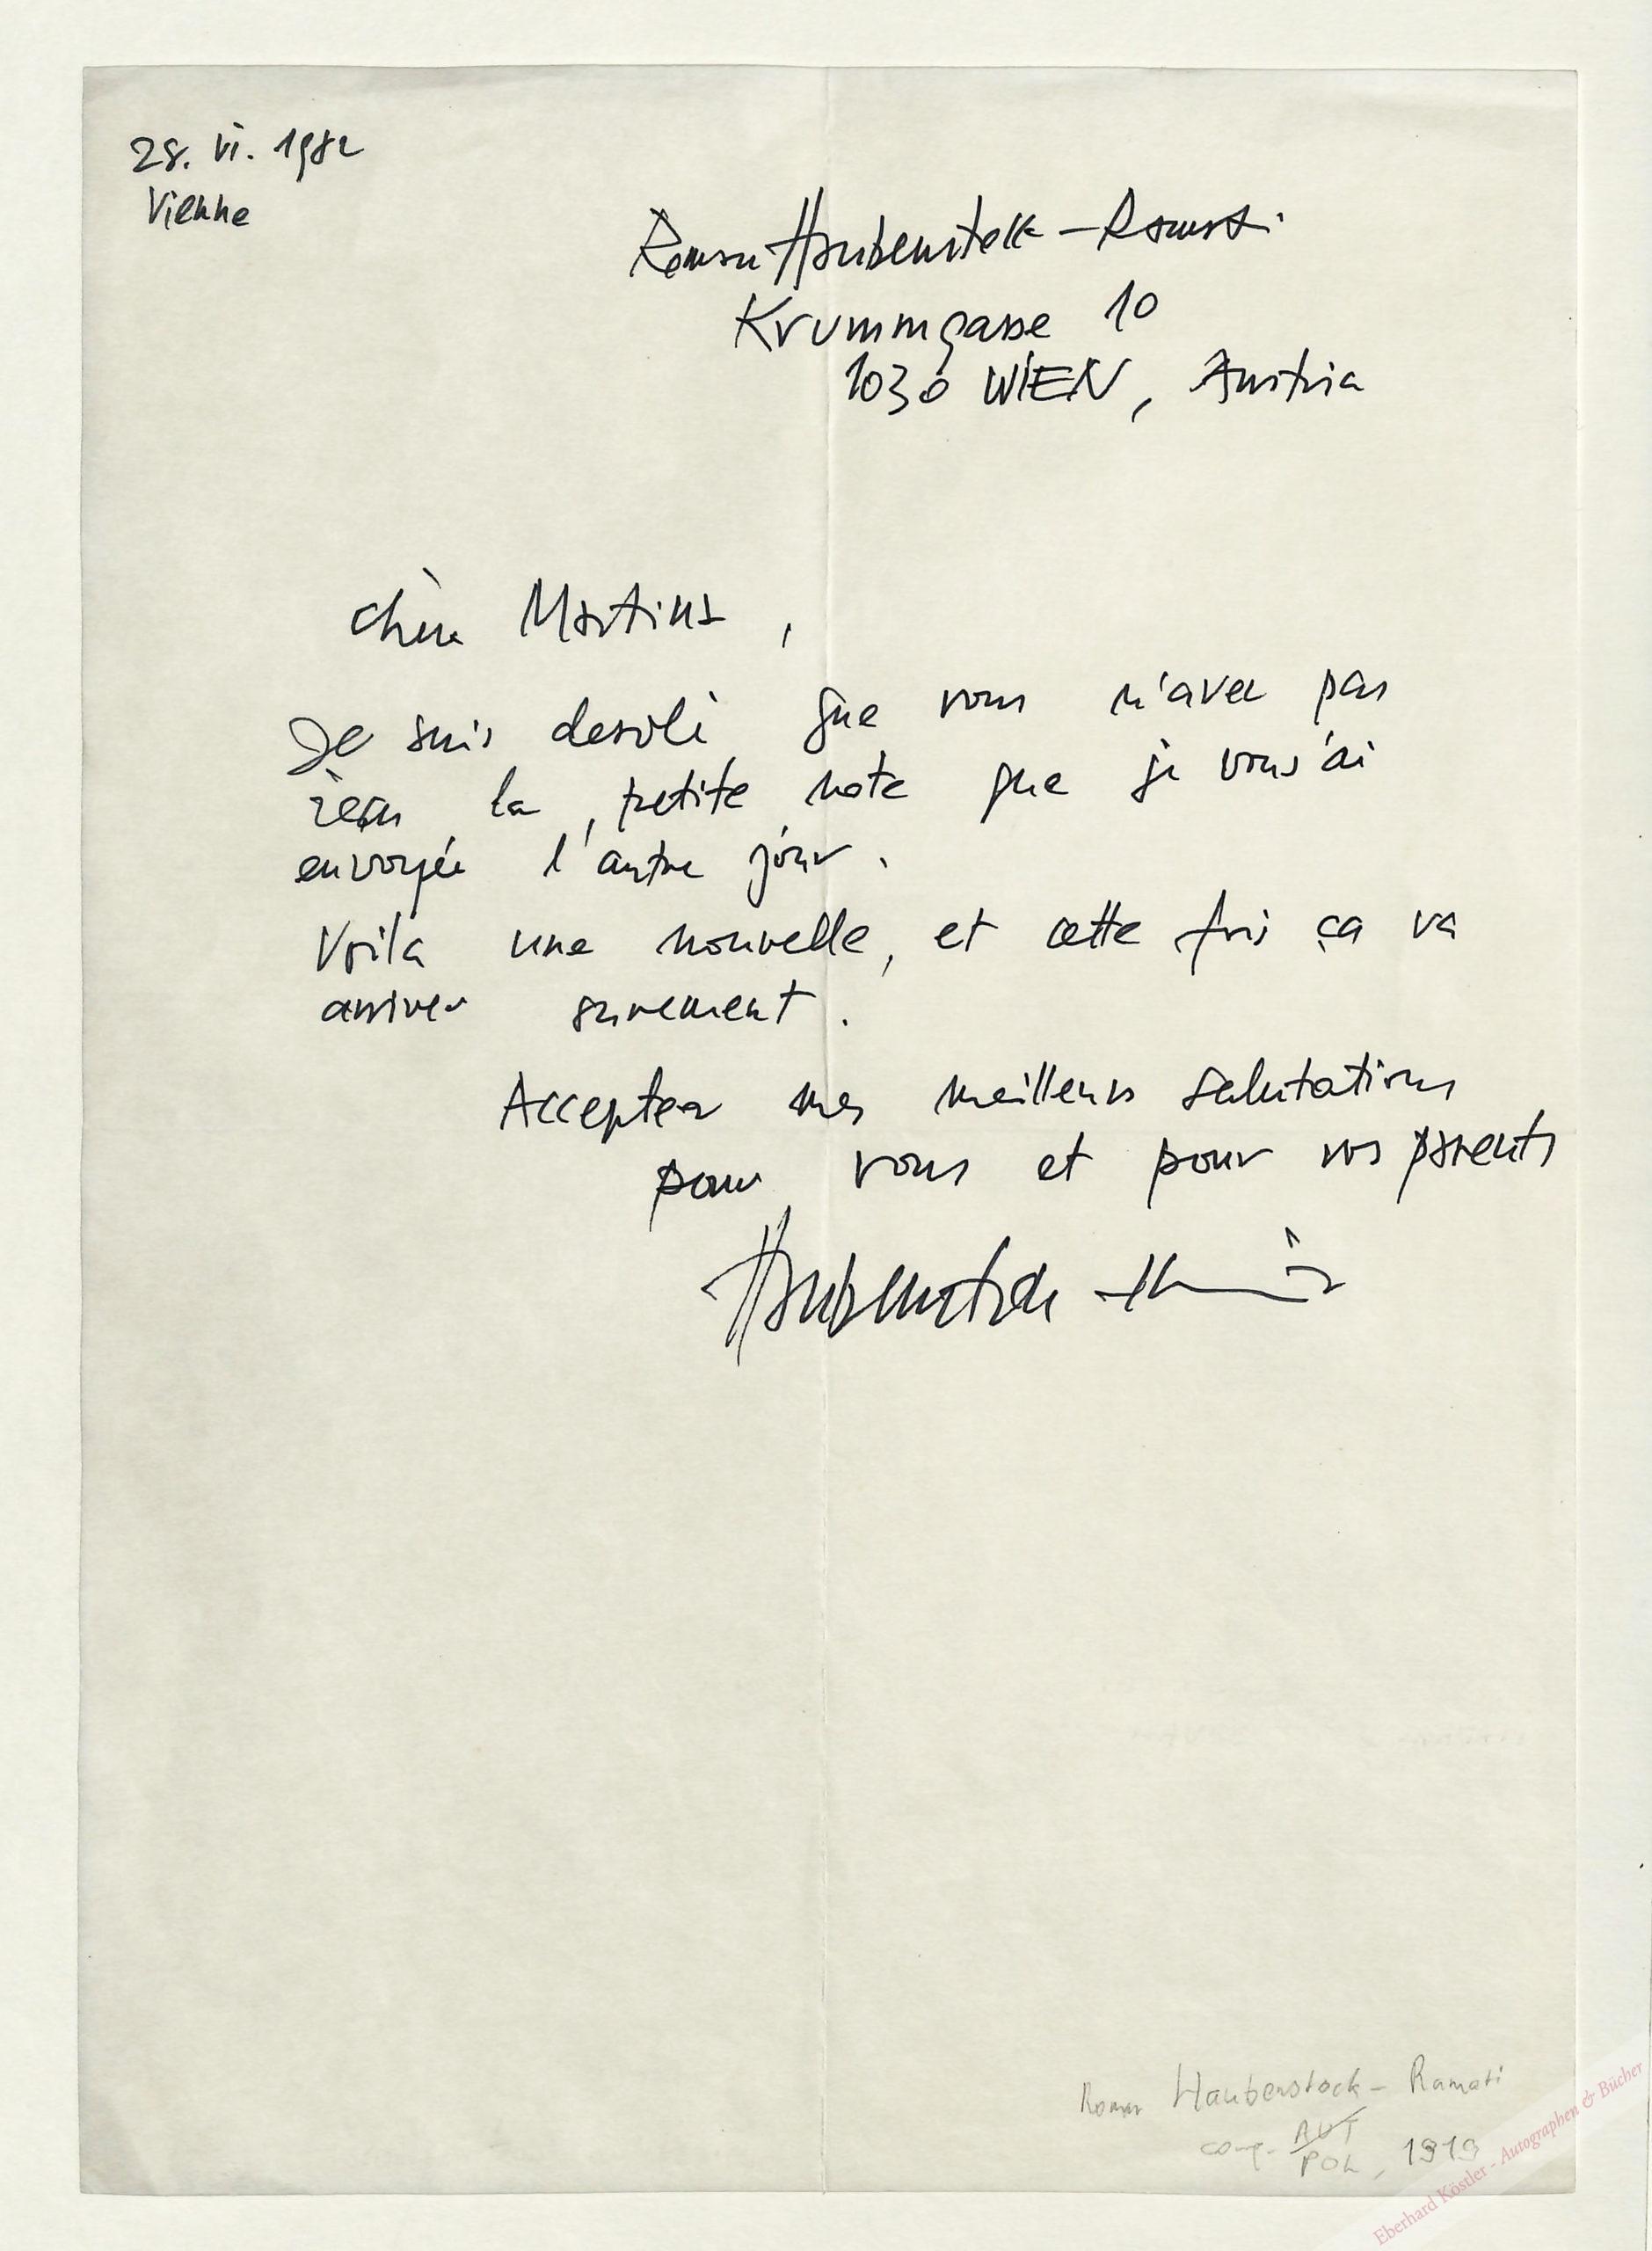 28. VI. 1982
Vienne
Roman Haubenstock-Ramati
Krummgasse 10
1030 WIEN, Austria
Chère Martina,
Je suis desolé que vous n'avez pas
reçu la petite note que je vous'ai
envoyée l'autre jour.
Voila une nouvelle, et cette fois ça va
arriver surement.
Acceptez mes meilleurs salutations
pour vous et pour vos parents
Haubenstock-Ramati
Roman Haubenstock-Ramati
comp. AUT
POL, 1919
Eberhard Köstler - Autographen & Bücher